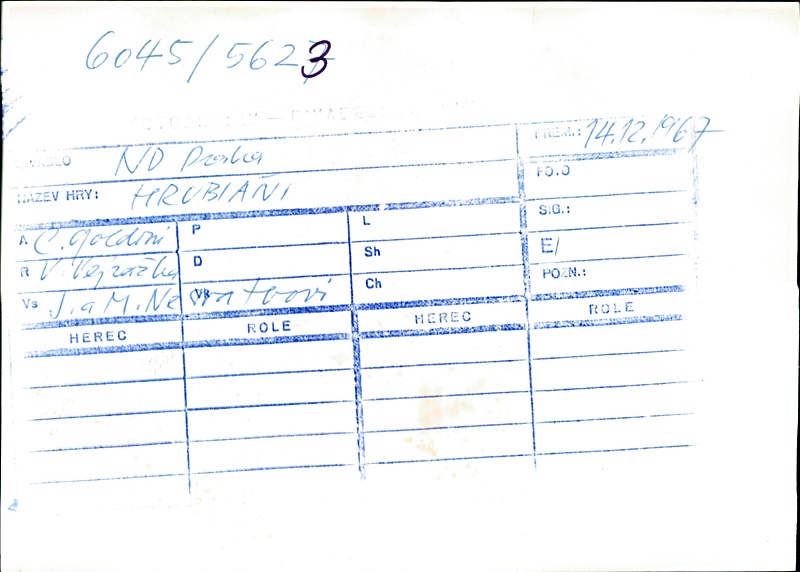 6045/5623
PREM.: 14.12.1967
ND Praha
NÁZEV HRY: HRUBIÁNI
FOTO
SIG.:
E/
POZN.:
A C. Goldoni P L
R V. Vejražka D Sh
Vs J. a M. Ne Vk Ch
HEREC ROLE HEREC ROLE